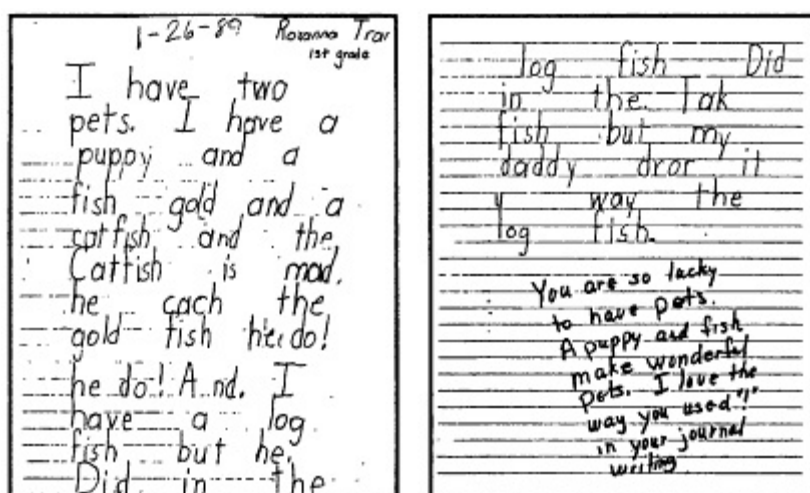 1-26-89 Roxanna Trav
1st grade
I have two
pets. I have a
puppy and a
fish gold and a
cat fish and the
Catfish is mad.
he cach the
gold fish he do!
he do! And. I
have a log
fish but he.
Did in the
log fish Did
in the. Tak
fish but my
daddy dror it
y way the
log fish.
You are so lucky
to have pets.
A puppy and fish
make wonderful
pets. I love the
way you used "!"
in your journal
writing